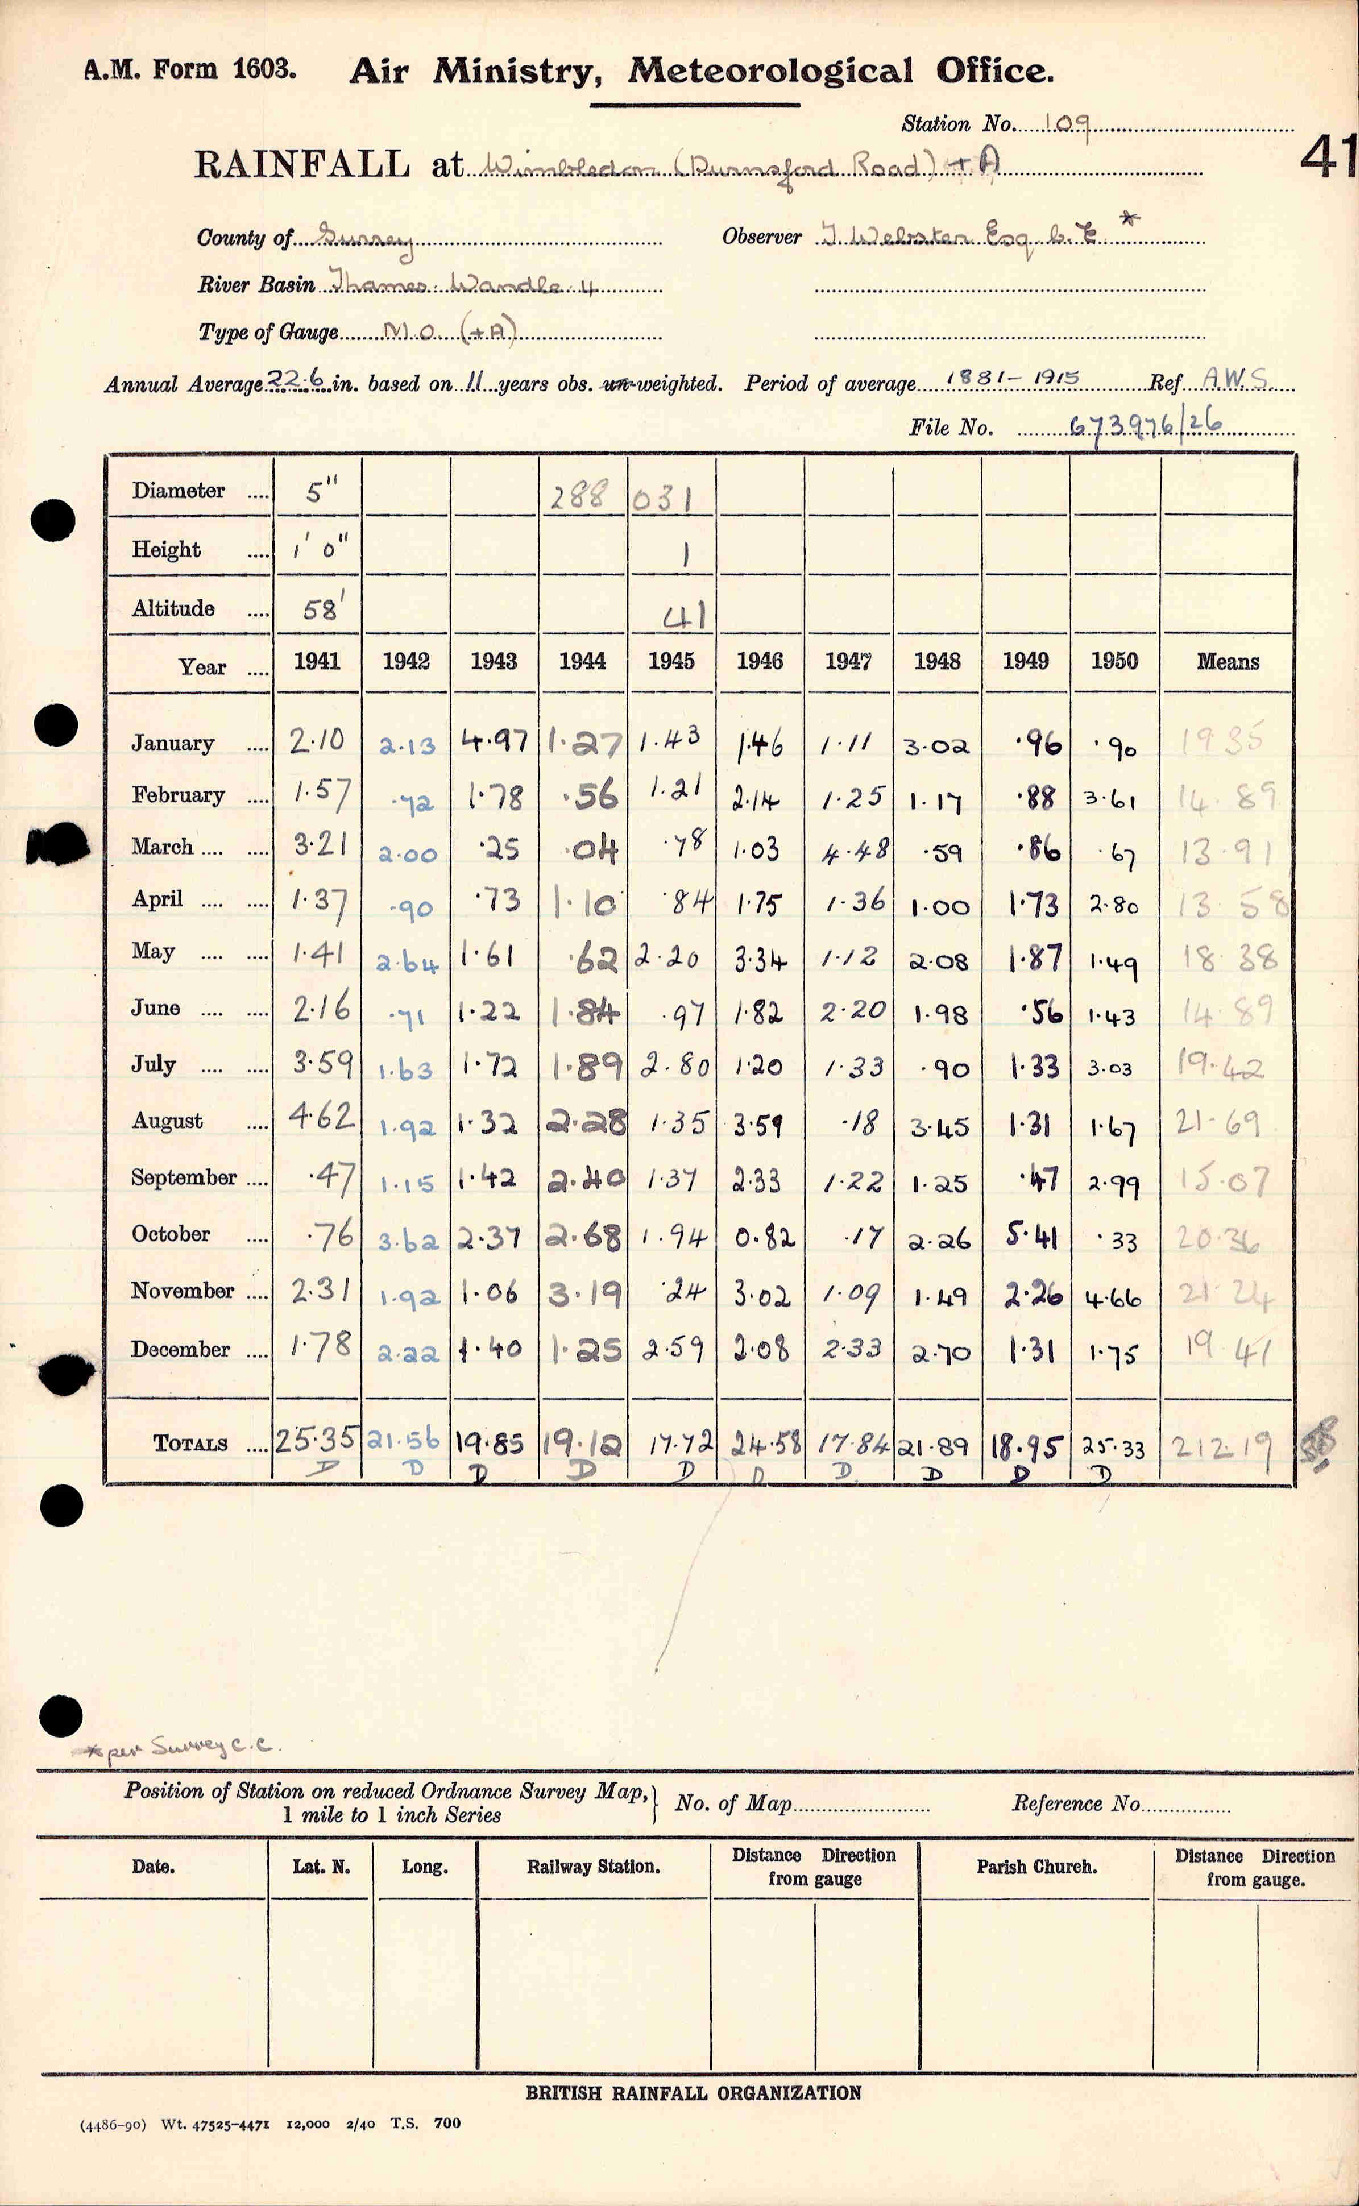 A.M. Form 1603. Air Ministry, Meteorological Office.
Station No. 109
41
RAINFALL at Wimbledon (Durnsford Road) + A
County of Surrey Observer J Webster Esq C.E *
River Basin Thames: Wandle 4
Type of Gauge M.O. (+A)
Annual Average 22.6 in. based on 11 years obs. un-weighted. Period of average 1881-1915 Ref A.W.S.
File No. 673976/26
Diameter .... 5" 288 031
Height .... 1' 0" 1
Altitude .... 58' 41
Year .... 1941 1942 1943 1944 1945 1946 1947 1948 1949 1950 Means
January .... 2.10 2.13 4.97 1.27 1.43 1.46 1.11 3.02 .96 .90 19 35
February .... 1.57 .72 1.78 .56 1.21 2.14 1.25 1.17 .88 3.61 14.89
March .... .... 3.21 2.00 .25 .04 .78 1.03 4.48 .59 .86 .67 13.91
April .... .... 1.37 .90 .73 1.10 .84 1.75 1.36 1.00 1.73 2.80 13.58
May .... .... 1.41 2.64 1.61 .62 2.20 3.34 1.12 2.08 1.87 1.49 18.38
June .... .... 2.16 .71 1.22 1.84 .97 1.82 2.20 1.98 .56 1.43 14.89
July .... .... 3.59 1.63 1.72 1.89 2.80 1.20 1.33 .90 1.33 3.03 19.42
August .... 4.62 1.92 1.32 2.28 1.35 3.59 .18 3.45 1.31 1.67 21.69
September .... .47 1.15 1.42 2.40 1.37 2.33 1.22 1.25 .47 2.99 15.07
October .... .76 3.62 2.37 2.68 1.94 0.82 .17 2.26 5.41 .33 20.36
November .... 2.31 1.92 1.06 3.19 .24 3.02 1.09 1.49 2.26 4.66 21.24
December .... 1.78 2.22 1.40 1.25 2.59 2.08 2.33 2.70 1.31 1.75 19.41
TOTALS .... 25.35 21.56 19.85 19.12 17.72 24.58 17.84 21.89 18.95 25.33 212.19
D D D D D D D D D D
*per Surrey C.C.
Position of Station on reduced Ordnance Survey Map,} No. of Map Reference No.
1 mile to 1 inch Series
Date. Lat. N. Long. Railway Station. Distance Direction from gauge Parish Church. Distance Direction from gauge.
BRITISH RAINFALL ORGANIZATION
(4486-90) Wt. 47525-4471 12,000 2/40 T.S. 700